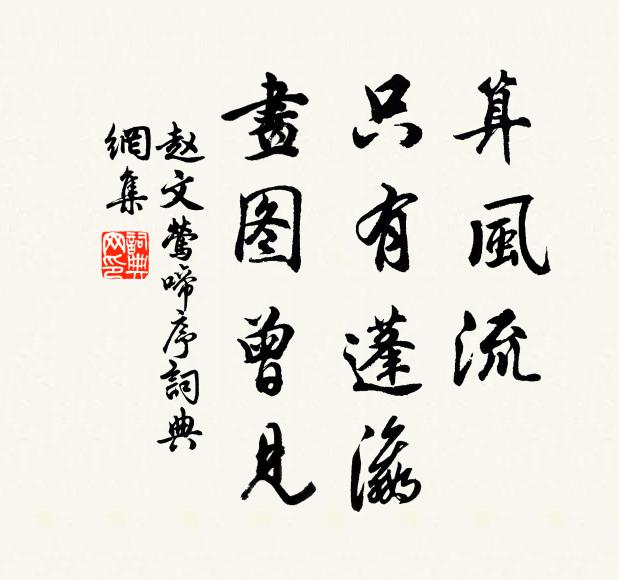 算風流
只有蓬瀛
畫图曾見
赵文莺啼序詞典
網集
詞典
网印